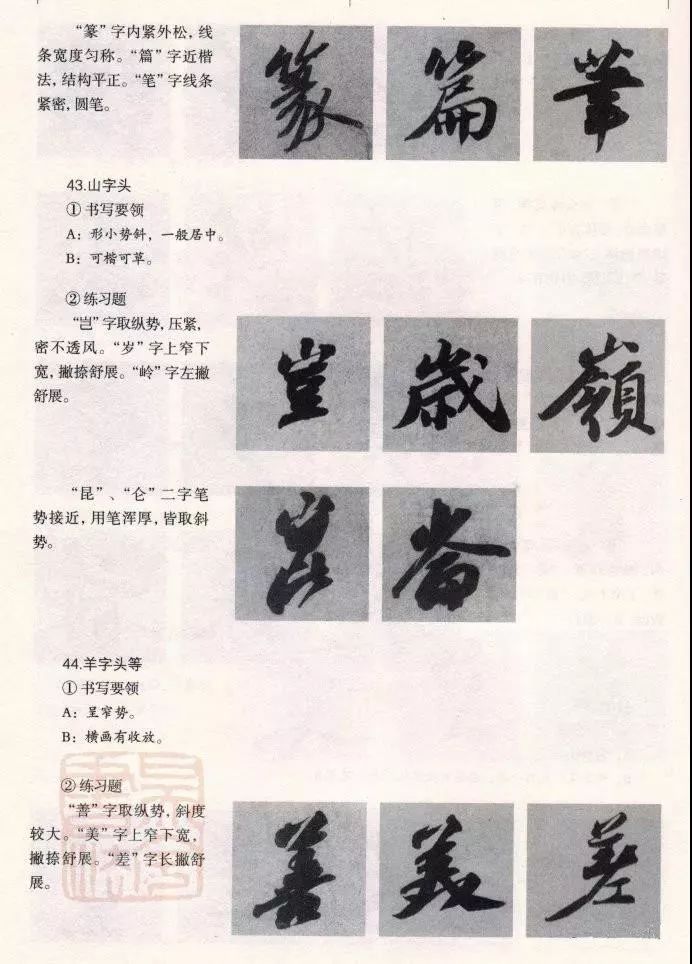 “篆”字内紧外松，线
条宽度匀称。“篇”字近楷
法，结构平正。“笔”字线条
紧密，圆笔。
篆 篇 筆
43.山字头
① 书写要领
A：形小势斜，一般居中。
B：可楷可草。
② 练习题
“岂”字取纵势，压紧，
密不透风。“岁”字上窄下
宽，撇捺舒展。“岭”字左撇
舒展。
豈 歲 嶺
“昆”、“仑”二字笔
势接近，用笔浑厚，皆取斜
势。
崑 崙
44.羊字头等
① 书写要领
A：呈窄势。
B：横画有收放。
② 练习题
“善”字取纵势，斜度
较大。“美”字上窄下宽，
撇捺舒展。“差”字长撇舒
展。
善 美 差